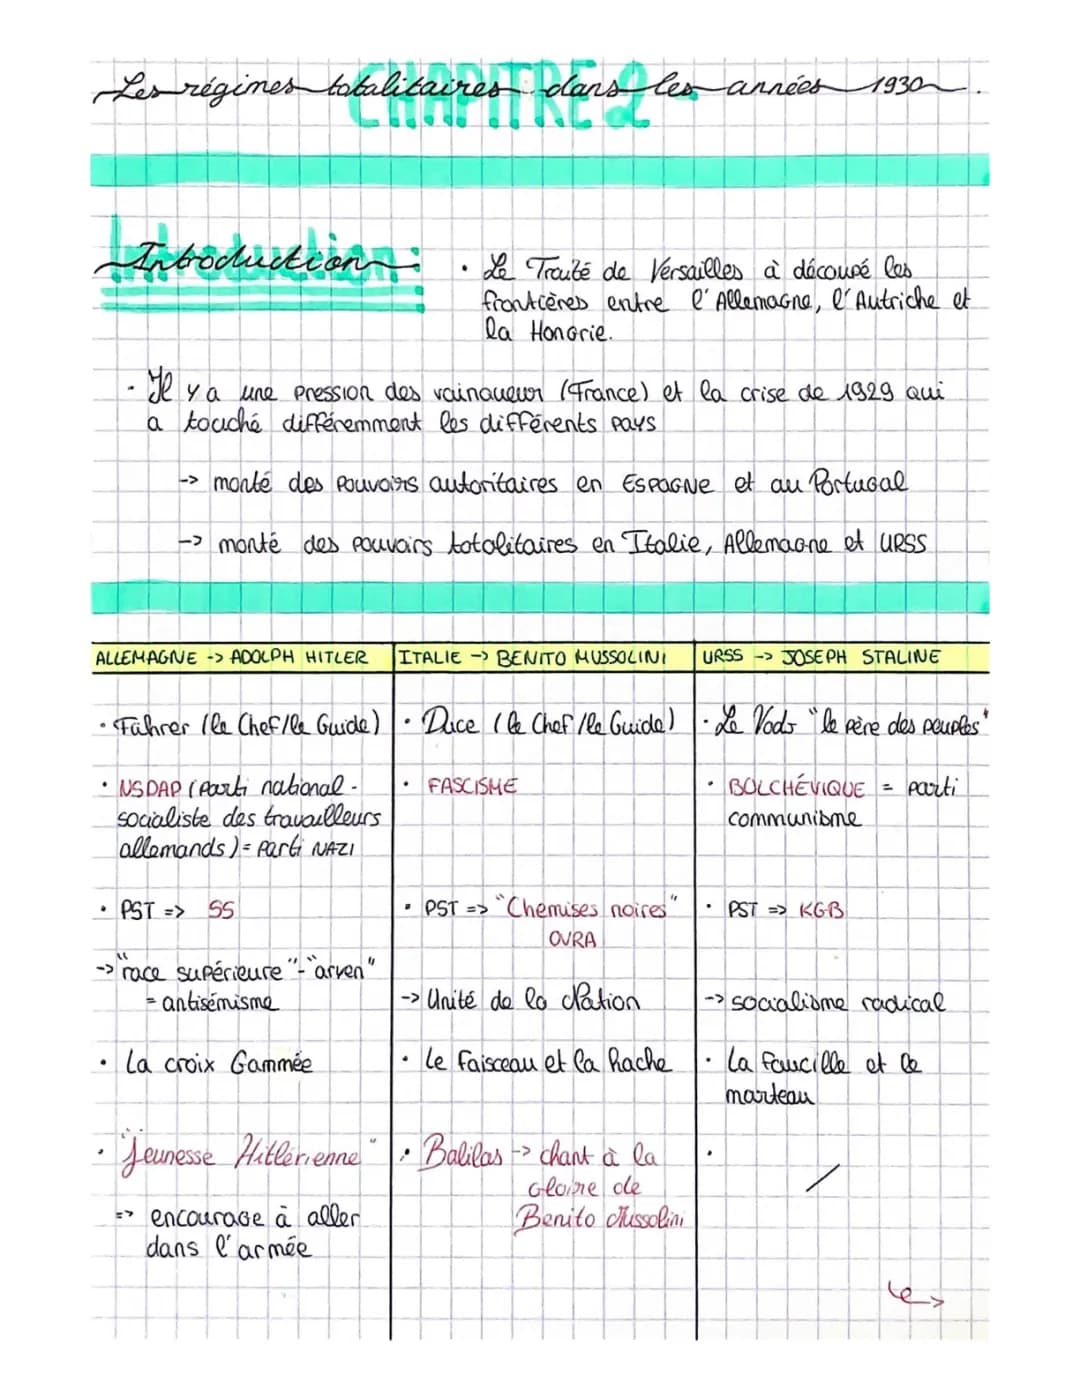 CHAPITRE 2
Les régimes totalitaires dans les années 1930.
Introduction :
• Le Traité de Versailles à découpé les
frontières entre l'Allemagne, l'Autriche et
la Hongrie.
• Il y a une pression des vainqueur (France) et la crise de 1929 qui
a touché différemment les différents pays
-> monté des pouvoirs autoritaires en ESPAGNE et au Portugal
-> monté des pouvoirs totalitaires en Italie, Allemagne et URSS
ALLEMAGNE -> ADOLPH HITLER
• Führer (le Chef/le Guide)
• NSDAP (Parti national-
socialiste des travailleurs
allemands) = Parti NAZI
• PST => SS
-> "race supérieure"-"aryen"
= antisémisme
• La croix Gammée
• "Jeunesse Hitlérienne"
=> encourage à aller
dans l'armée
ITALIE -> BENITO MUSSOLINI
• Duce (le Chef/le Guide)
• FASCISME
• PST => "Chemises noires"
OVRA
-> Unité de la Nation
• Le Faisceau et la hache
• Balilas -> chant à la
Gloire de
Benito Mussolini
URSS -> JOSEPH STALINE
• Le Vodj "le père des peuples"
• BOLCHÉVIQUE = parti
communisme
• PST => KGB
-> socialisme radical
• La faucille et le
marteau
• /